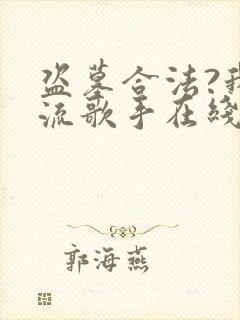 盗墓合法?我
流歌手在线
郭海燕